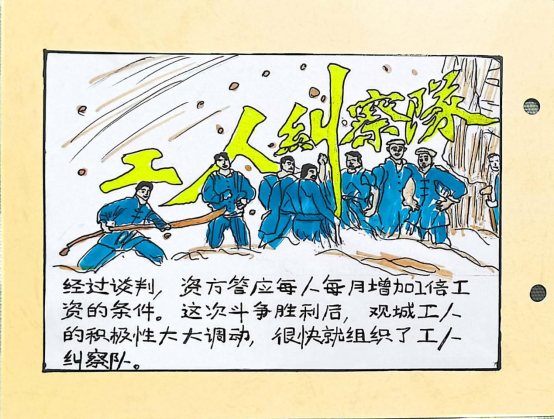 工人纠察队
经过谈判，资方答应每人每月增加1倍工
资的条件。这次斗争胜利后，观城工人
的积极性大大调动，很快就组织了工人
纠察队。